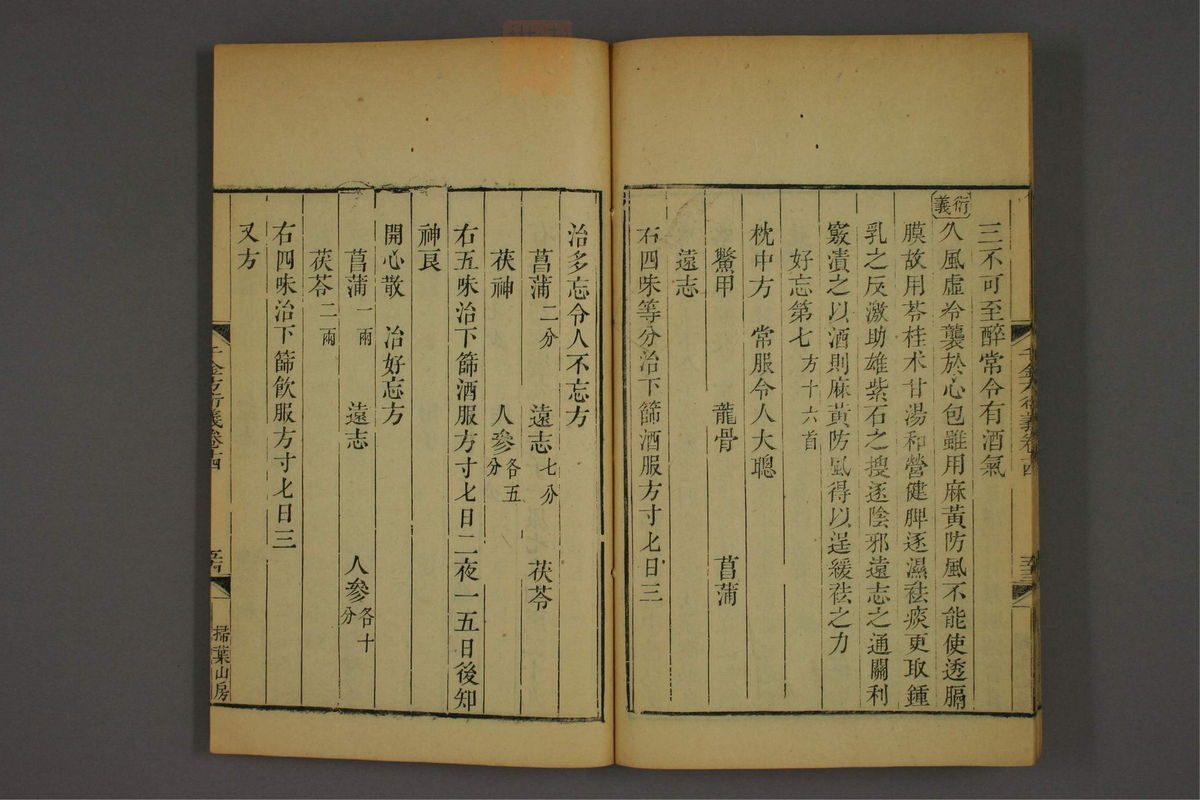 三不可至醉常令有酒氣
衍義
久風虛冷襲於心包雖用麻黃防風不能使透膈
膜故用苓桂术甘湯和營健脾逐濕祛痰更取鍾
乳之反激助雄紫石之搜逐陰邪遠志之通關利
竅潰之以酒則麻黃防風得以逞緩祛之力
好忘第七方十六首
枕中方　常服令人大聰
鱉甲　龍骨　菖蒲
遠志
右四味等分治下篩酒服方寸七日三
治多忘令人不忘方
菖蒲二分　遠志七分　茯苓
茯神　人參各五分
右五味治下篩酒服方寸七日二夜一五日後知
神良
開心散　治好忘方
菖蒲一兩　遠志　人參各十分
茯苓二兩
右四味治下篩飲服方寸七日三
又方
千金方衍義卷十四
掃葉山房